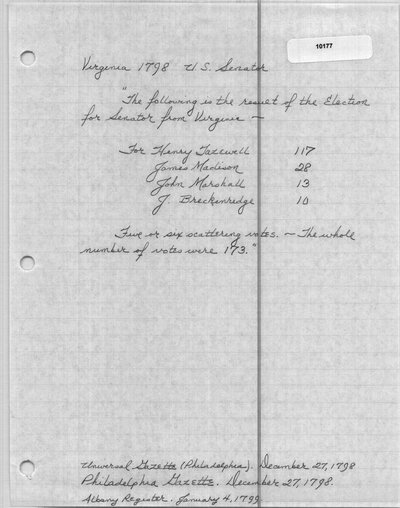 10177
Virginia 1798 U.S. Senator
"The following is the result of the Election
for Senator from Virginia —
For Henry Tazewell 117
James Madison 28
John Marshall 13
J. Breckenridge 10
Five or six scattering votes. — The whole
number of votes were 173."
Universal Gazette (Philadelphia). December 27, 1798
Philadelphia Gazette. December 27, 1798.
Albany Register. January 4, 1799.